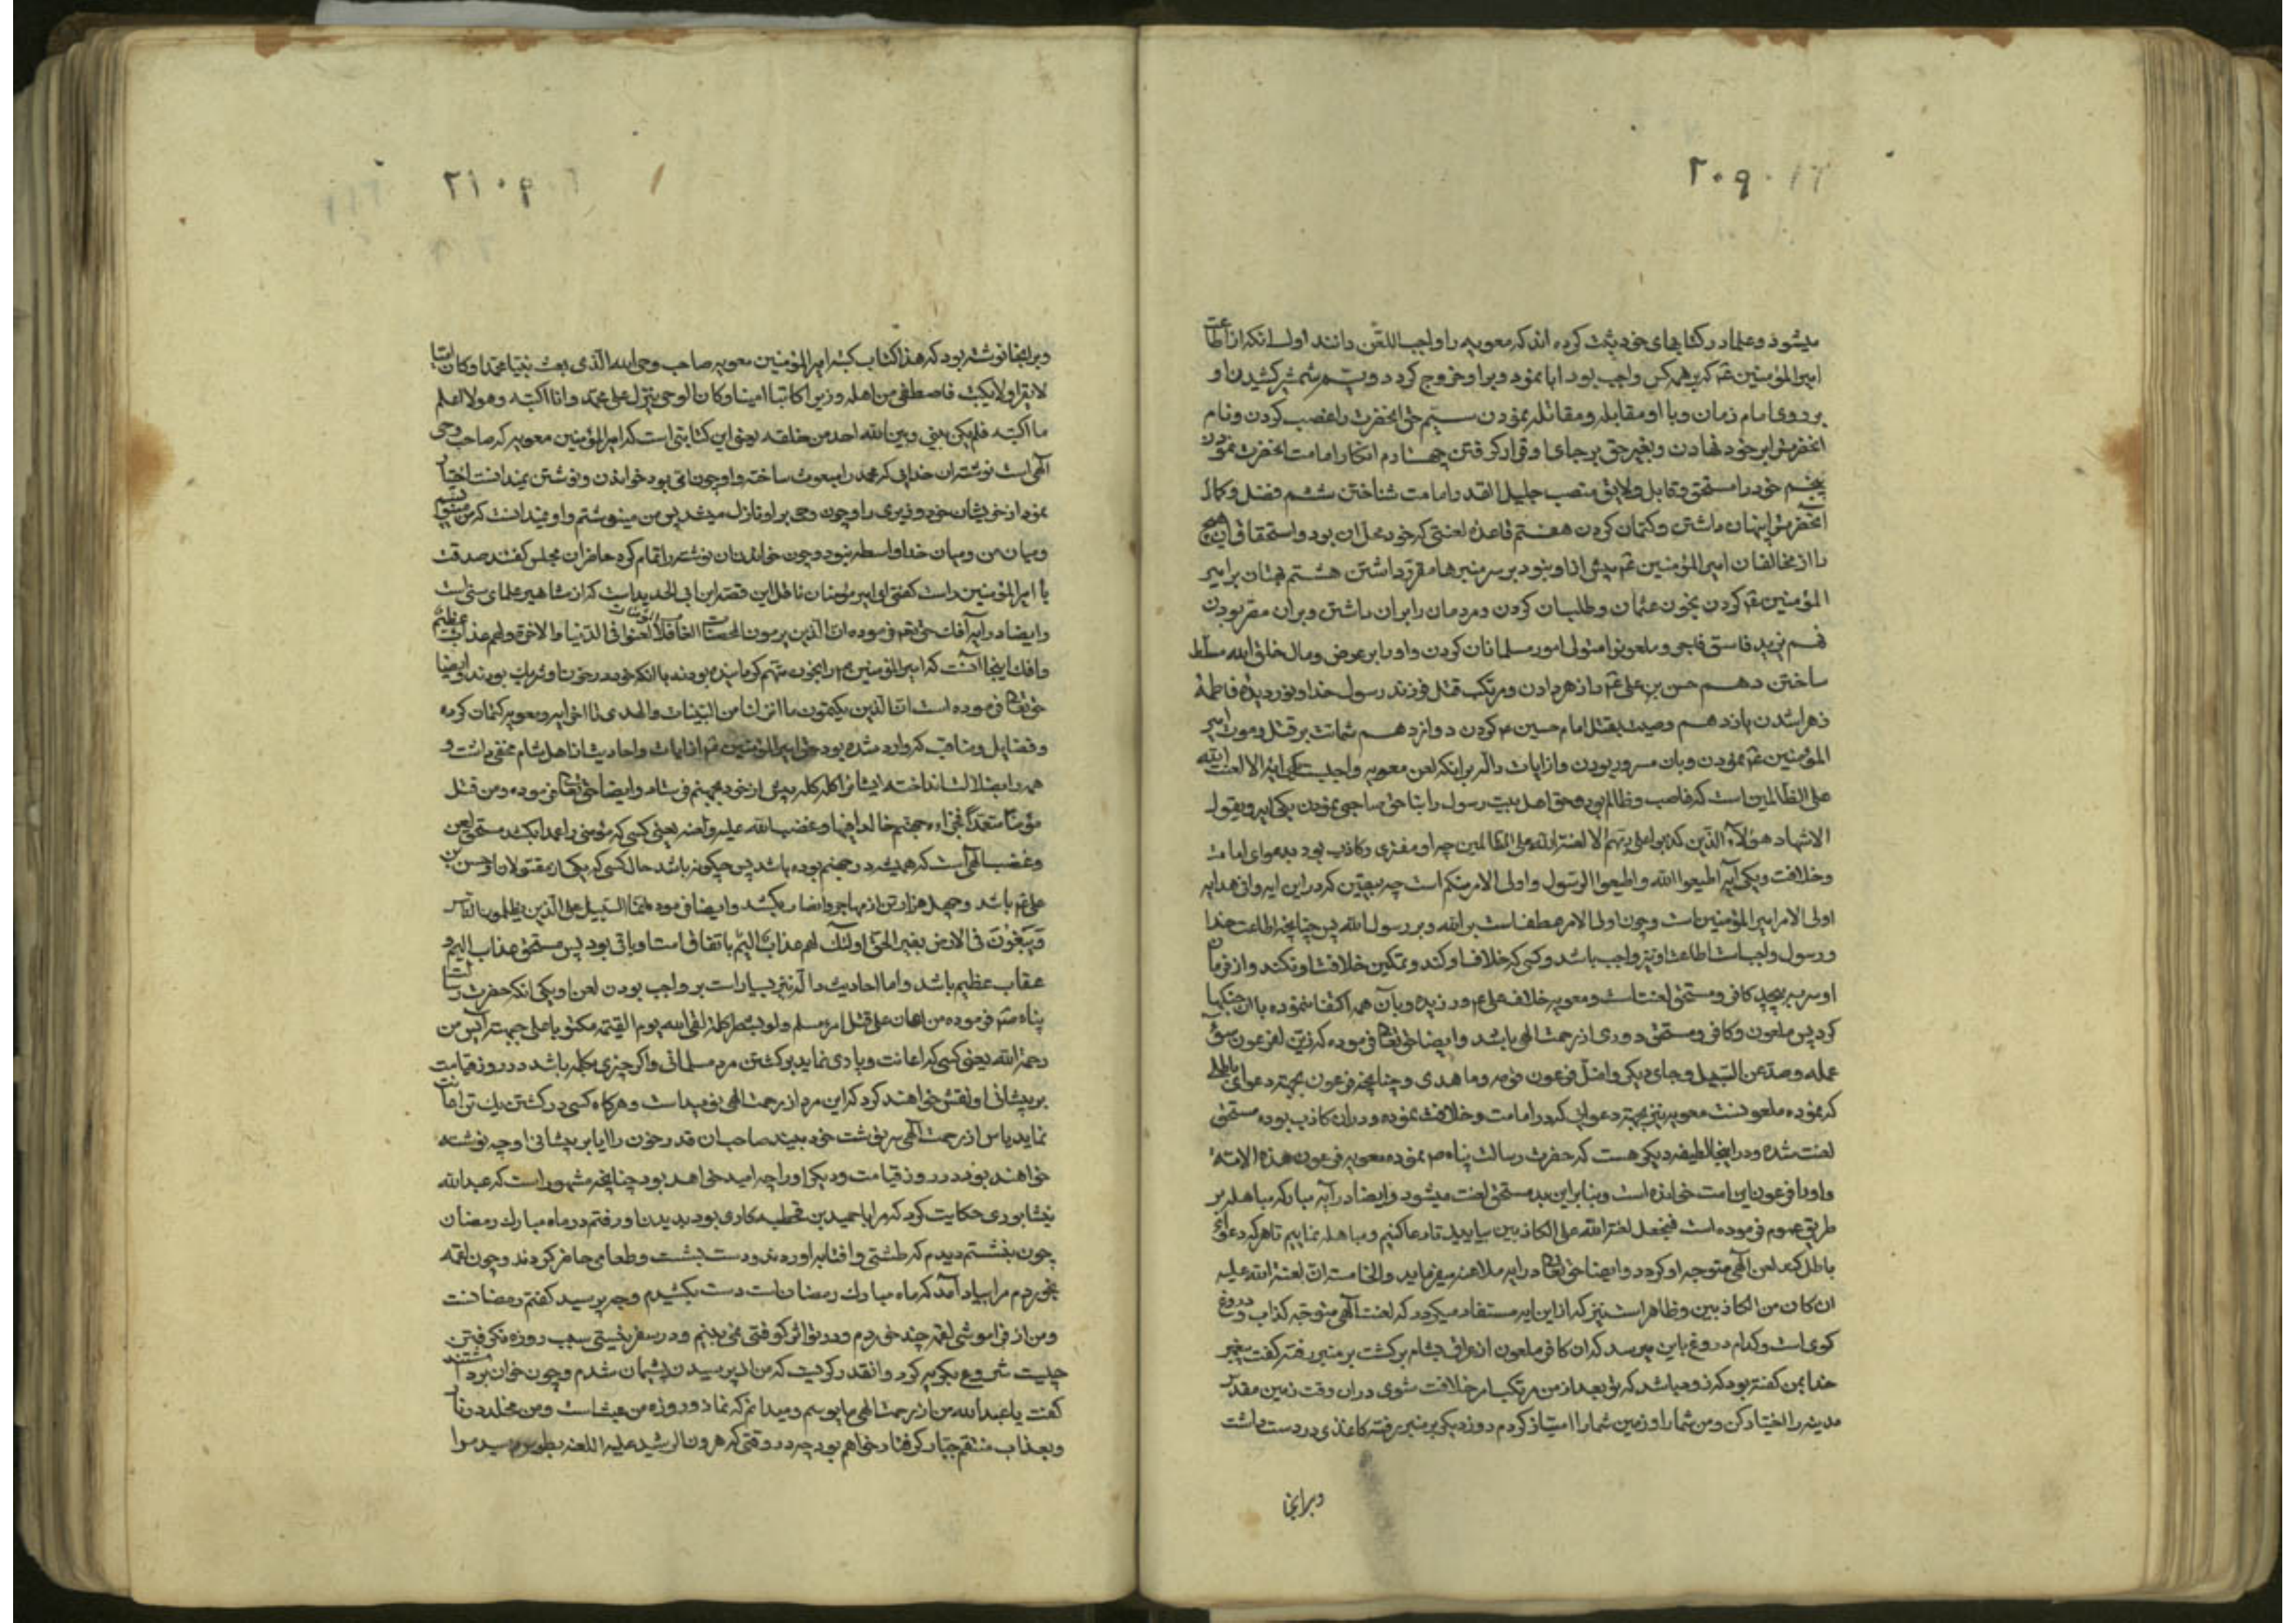 ۲۰۹
میشود و علما در کتابهای خود ثبت کرده اند که معویه را واجب اللعن دانند اول انکه از اطاعت
امیرالمؤمنین ع م که بر همه کس واجب بود ابا نمود و بر او خروج کرد دویم شمشیر کشیدن او
بر روی امام زمان و با او مقابله و مقاتله نمودن سیم حق انحضرت را غصب کردن و نام
انحضرت بر خود نهادن و بغیر حق بر جای او قرار کرفتن چهارم انکار امامت انحضرت نمودن
پنجم خود را مستحق و قابل و لایق منصب جلیل القدر امامت شناختن ششم فضل و کمال
انحضرت پنهان داشتن و کتمان کردن هفتم قاعده لعنتی که خود محل ان بود و استحقاق
را از مخالفان امیرالمؤمنین ع م پیش از او نبود بر سر منبرها مقرر داشتن هشتم بهتان بر امیر
المؤمنین ع م کردن بخون عثمان و طلب ان کردن و مردمان را بر ان داشتن و بر ان مقر بودن
نهم یزید فاسق فاجر و ملعون را متولی امور مسلمانان کردن و او را بر عرض و مال خلق الله مسلط
ساختن دهم حسن بن علی ع م را زهر دادن و مرتکب قتل فرزند رسول خدا و نور دیده فاطمه
زهرا شدن یازدهم وصیت بقتل امام حسین ع م کردن دوازدهم شماتت بر قتل و موت امیر
المؤمنین ع م نمودن و بان مسرور بودن و از ایات داله بر اینکه لعن معویه واجبست یکی ایه الا لعنت الله
علی الظالمین است که غاصب و ظالم بوده و حق اهل بیت رسول را بناحق ساجی نمودن یکی ایه و یقول
الاشهاد هؤلاء الذین کذبوا علی ربهم الا لعنة الله علی الظالمین چه او مفتری و کاذب بود بدعوای امامت
و خلافت و یکی آیه اطیعوا الله و اطیعوا الرسول و اولی الامر منکم است چه بیقین که در این ایه وافی هدایه
اولی الامر امیرالمؤمنین است و چون اولی الامر عطف است بر الله و بر رسول الله پس چنانچه اطاعت خدا
و رسول واجبست اطاعت او نیز واجب باشد و کسی که خلاف او کند و تمکین خلافت او نکند و از فرمان
او سر بپیچد کافر و مستحق لعنت است و معویه خلاف علی ع م ورزیده و بان همه اکتفا ننموده با ان جنکها
کرد پس ملعون و کافر و مستحق دوری از رحمت الهی باشد و ایضا حق تعالی فرموده که زین لفرعون سوء
عمله و صد عن السبیل و جای دیکر و اضل فرعون قومه و ما هدی و چنانچه فرعون بجهة دعوای باطل
که نموده ملعونست معویه نیز بجهة دعوایی که در امامت و خلافت نموده و در ان کاذب بوده مستحق
لعنت شده و در اینجا لطیفه دیکر هست که حضرت رسالت پناه ص نموده معویه فرعون هذه الامة
و او را فرعون این امت خوانده است و بنابر این بد مستحق لعنت میشود و ایضا در آیه مبارکه مباهله بر
طریق عموم فرموده است فنجعل لعنة الله علی الکاذبین بیایید تا دعا کنیم و مباهله نماییم تا هر که دعوای
باطل کند لعن الهی متوجه او کردد و ایضا حق تعالی در ایه ملاعنه میفرماید و الخامسة ان لعنة الله علیه
ان کان من الکاذبین و ظاهر است نیز که از این ایه مستفاد میکردد که لعنت الهی متوجه کذاب و دروغ
کوی است و کدام دروغ باین میرسد که ان کافر ملعون از عراق بشام برکشت بر منبر رفته کفت پیغمبر
خدا بمن کفته بود که زود باشد که تو بعد از من مرتکب امر خلافت شوی در ان وقت زمین مقدس
مدینه را اختیار کن و من شما را و زمین شما را امتیاز کردم و روز دیکر بر منبر رفته کاغذی در دست داشت
و بر انجا
۲۱۰
و بر انجا نوشته بود که هذا کتاب کتبه امیرالمؤمنین معویه صاحب وحی الله الذی بعث نبیا محمدا و کان امیا
لا یقرا و لا یکتب فاصطفی من اهله وزیرا کاتبا امینا و کان الوحی ینزل علی محمد و انا اکتبه و هو لا اعلم
ما اکتبه فلم یکن بینی و بین الله احد من خلقه یعنی این کتابتی است که امیرالمؤمنین معویه که صاحب وحی
الهی است نوشته ان خدایی که محمد را مبعوث ساخته و او چون امی بود خواندن و نوشتن نمیدانست اختیار
نمود از خویشان خود وزیری را و چون وحی بر او نازل میشد پس من مینوشتم و او نمیدانست که من مینویسم
و میان من و میان خدا واسطه نبود و چون خواندن ان نوشته را تمام کرد حاضران مجلس کفتند صدقت
یا امیرالمؤمنین راست کفتی ای امیر مؤمنان ناقل این قصه ابن ابی الحدید است که از مشاهیر علمای سنی است
و ایضا در آیه افک حق تعم فرموده ان الذین یرمون المحصنات الغافلات المؤمنات لعنوا فی الدنیا و الاخرة و لهم عذاب عظیم
و افک اینجا انست که امیرالمؤمنین ع م را بخون متهم کردانیده بودند با انکه خود در خون او شریک بودند و ایضا
حق تعالی فرموده است ان الذین یکتمون ما انزلنا من البینات و الهدی تا اخر ایه و معویه کتمان کرده
و فضایل و مناقب که وارد شده بود حق امیرالمؤمنین ع م از ایات و احادیث از اهل شام مخفی داشت و
همه را بضلالت انداخته ایشان را کله کله پیش از خود بجهنم فرستاد و ایضا حق تعالی فرموده و من قتل
مؤمنا متعمدا فجزاءه جهنم خالدا فیها و غضب الله علیه و لعنه یعنی کسی که مؤمنی را عمدا بکشد مستحق لعن
و غضب الهی است که همیشه در جهنم بوده باشد پس چکونه باشد حال کسی که یکی از مقتولان او حسن بن
علی ع م باشد و چهل هزار تن از مهاجر و انصار بکشد و ایضا فرموده انما السبیل علی الذین یظلمون الناس
و یبغون فی الارض بغیر الحق اولئک لهم عذاب الیم باتفاق امت او باقی بود پس مستحق عذاب الیم و
عقاب عظیم باشد و اما احادیث داله نیز بسیار است بر واجب بودن لعن او یکی انکه حضرت رسالت
پناه ص فرموده من اعان علی قتل امرء مسلم و لو بشطر کلمة لقی الله یوم القیمة مکتوبا علی جبهته آیس من
رحمة الله یعنی کسی که اعانت و یاری نماید بر کشتن مرد مسلمانی و اکر چیزی بکلمه باشد در روز قیامت
بر پیشانی او نقش خواهند کرد که این مرد از رحمت الهی نومید است و هرکاه کسی در کشتن یک تن اعانت
نماید یاس از رحمت الهی سرنوشت خود بیند صاحب ان قدر خون را ایا بر پیشانی او چه نوشته
خواهند بود در روز قیامت و دیکر او را چه امید خواهد بود چنانچه مشهور است که عبدالله
نیشابوری حکایت کرد که مرا با حمید بن قحطبه کاری بود بدیدن او رفتم در ماه مبارک رمضان
چون بنشستم دیدم که طشتی و افتابه اوردند و دست بشست و طعامی حاضر کردند و چون لقمه
بخوردم مرا بیاد آمد که ماه مبارک رمضان است دست بکشیدم وجه پرسید کفتم رمضانست
و من از فراموشی لقمه چند خوردم و در تو اثر کوفتی نمی بینم و در سفر نیستی سبب روزه نکرفتن
چیست شروع بکریه کرد و انقدر کریست که من از پرسیدن پشیمان شدم و چون خوان برداشتند
کفت یا عبدالله من از رحمت الهی مایوسم و میدانم که نماز و روزه من عبث است و من مخلد در نار
و بعذاب منتقم جبار کرفتار خواهم بود چه در وقتی که هرون الرشید علیه اللعنه بطوس رسید مرا